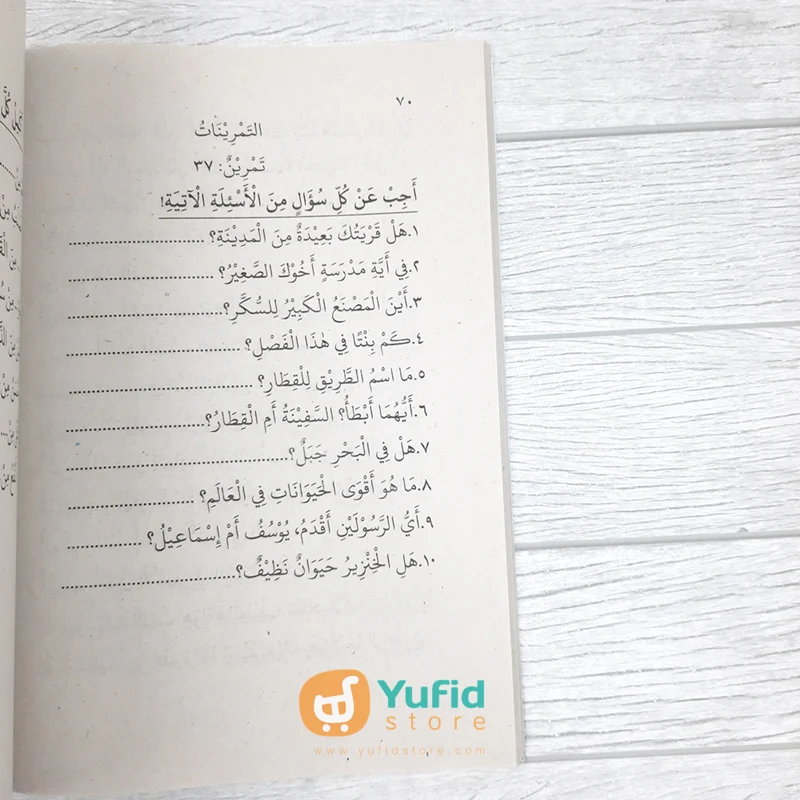 ٧٠
التَمْرِيْنَاتُ
تَمْرِيْنٌ: ٣٧
أَجِبْ عَنْ كُلِّ سُؤَالٍ مِنَ الْأَسْئِلَةِ الْآتِيَةِ!
١.هَلْ قَرْيَتُكَ بَعِيْدَةٌ مِنَ الْمَدِيْنَةِ؟ ..............................
٢.فِي أَيَّةِ مَدْرَسَةٍ أَخُوْكَ الصَّغِيْرُ؟ ..............................
٣.أَيْنَ الْمَصْنَعُ الْكَبِيْرُ لِلسُّكَّرِ؟..............................
٤.كَمْ بِنْتًا فِي هٰذَا الْفَصْلِ؟ ..............................
٥.مَا اسْمُ الطَّرِيْقِ لِلْقِطَارِ؟ ..............................
٦.أَيُّهُمَا أَبْطَأُ؟ السَّفِيْنَةُ أَمِ الْقِطَارُ؟..............................
٧.هَلْ فِي الْبَحْرِ جَبَلٌ؟..............................
٨.مَا هُوَ أَقْوَى الْحَيَوَانَاتِ فِي الْعَالَمِ؟ ..............................
٩.أَيُّ الرَّسُوْلَيْنِ أَقْدَمُ، يُوْسُفُ أَمْ إِسْمَاعِيْلُ؟ ................
١٠.هَلِ الْخِنْزِيرُ حَيَوَانٌ نَظِيْفٌ؟..............................
Yufid
store
www.yufidstore.com